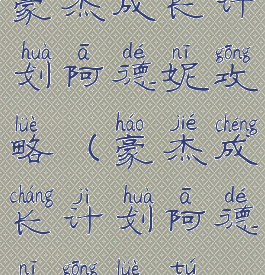 豪杰成长计
huà ā dé nī gōng
划阿德妮攻
lüè háo jié chéng
略（豪杰成
cháng jì huà ā dé
长计划阿德
nī gōng lüè tú